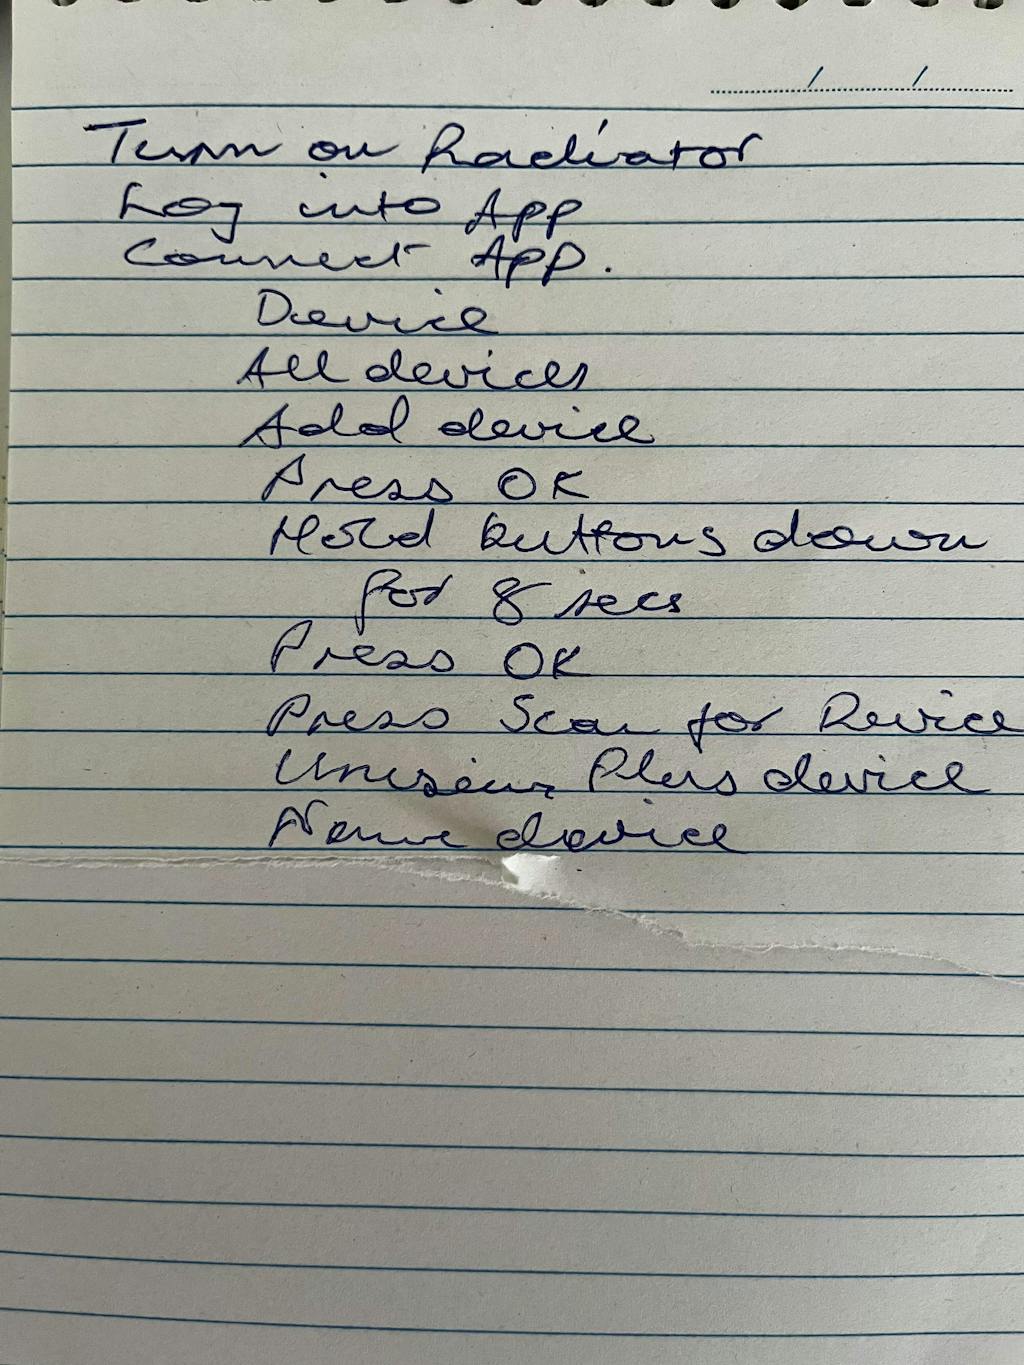 Turn on Radiator
Log into App
Connect App.
Device
All devices
Add device
Press OK
Hold buttons down
for 8 secs
Press OK
Press Scan for Device
Plus device
Name device